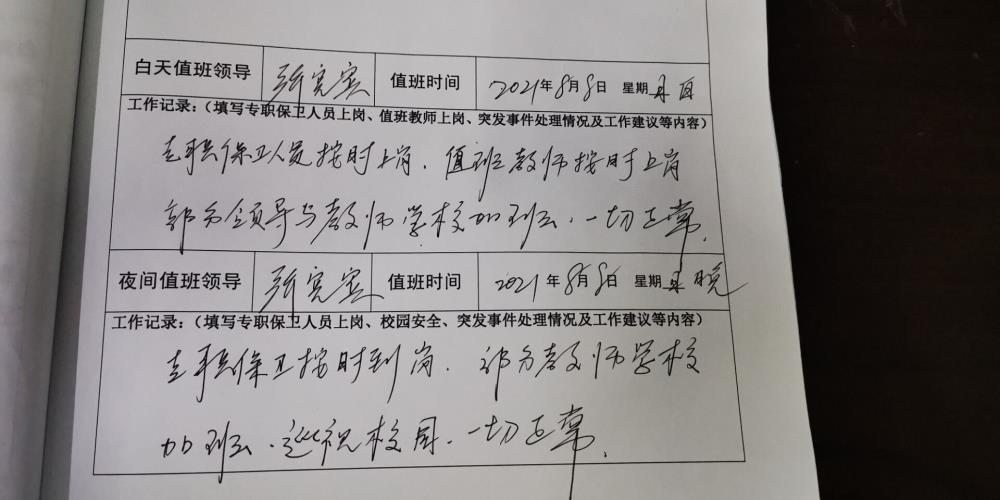 白天值班领导 张宪宾 值班时间 2021年8月8日 星期日 白
工作记录：（填写专职保卫人员上岗、值班教师上岗、突发事件处理情况及工作建议等内容）
专职保卫人员按时上岗．值班教师按时上岗
部分领导与教师学校加班．一切正常．
夜间值班领导 张宪宾 值班时间 2021年8月8日 星期日 晚
工作记录：（填写专职保卫人员上岗、校园安全、突发事件处理情况及工作建议等内容）
专职保卫按时到岗．部分教师学校
加班．巡视校园．一切正常．